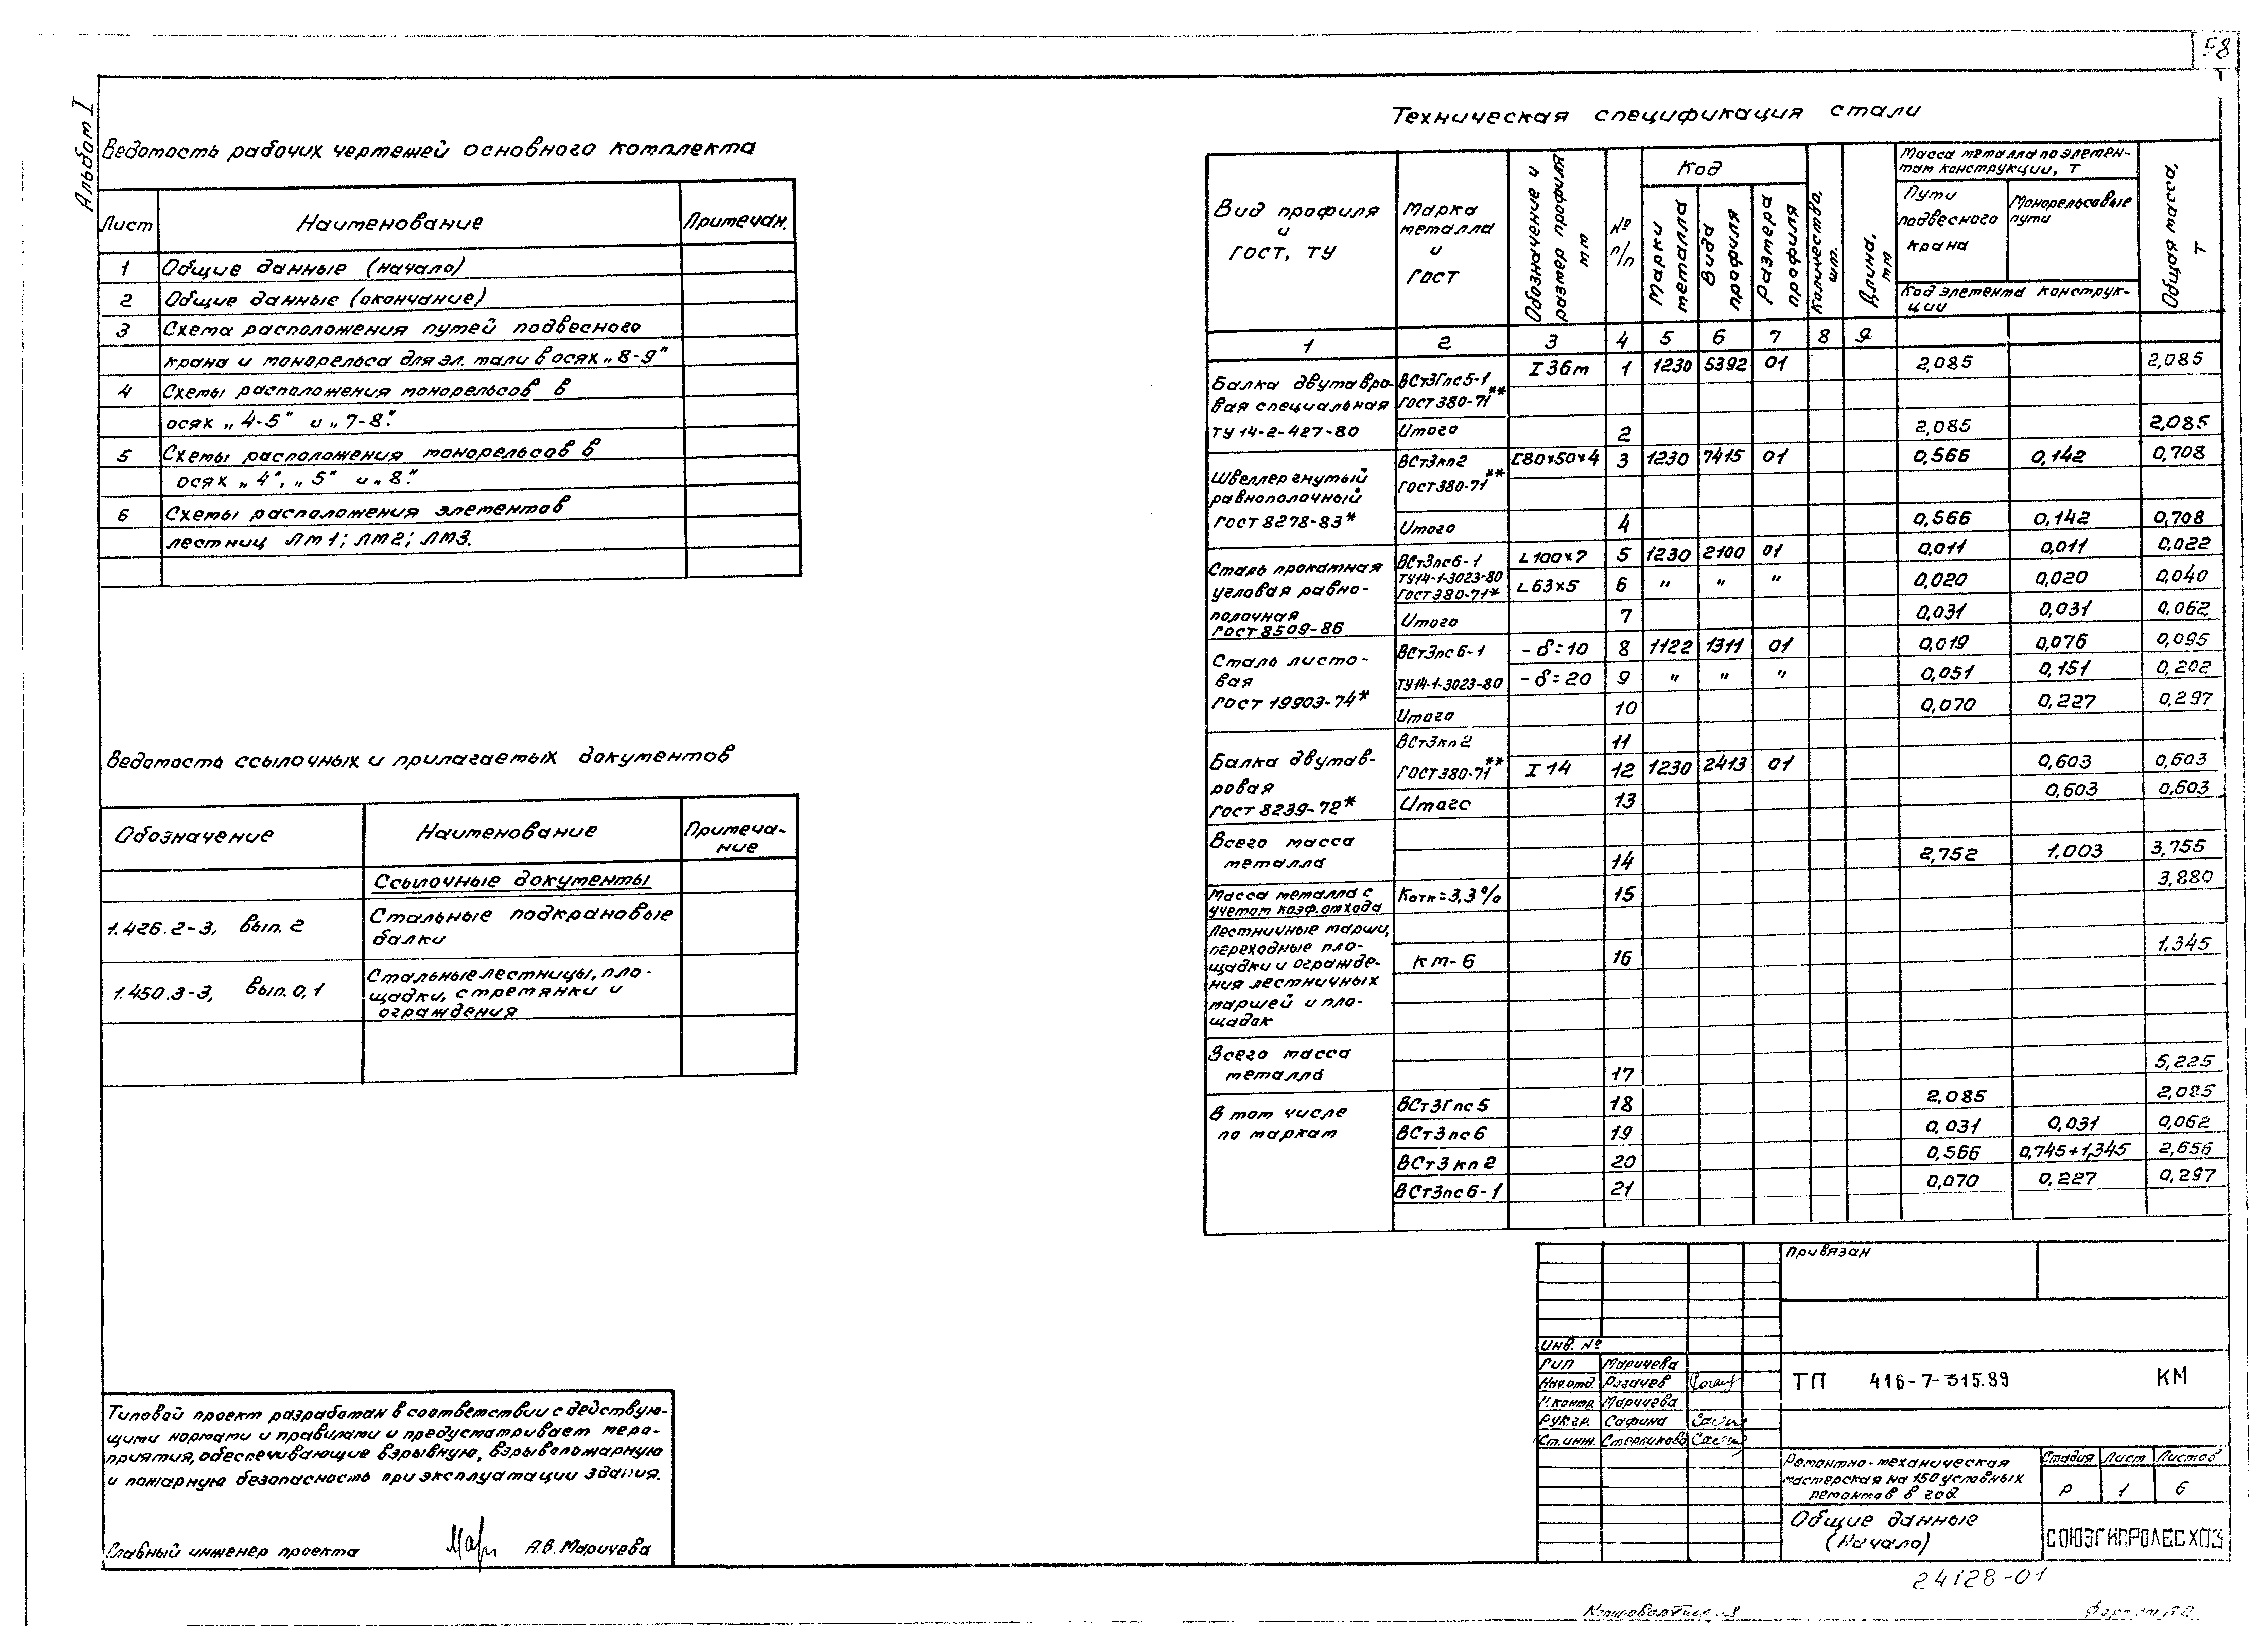 58
Альбом I
Ведомость рабочих чертежей основного комплекта
Лист Наименование Примечан.
1 Общие данные (начало)
2 Общие данные (окончание)
3 Схема расположения путей подвесного
крана и монорельса для эл. тали в осях „8-9"
4 Схемы расположения монорельсов в
осях „4-5" и „7-8".
5 Схемы расположения монорельсов в
осях „4", „5" и „8".
6 Схемы расположения элементов
лестниц ЛМ1; ЛМ2; ЛМ3.
Ведомость ссылочных и прилагаемых документов
Обозначение Наименование Примеча-
ние
Ссылочные документы
1.426.2-3, вып. 2 Стальные подкрановые
балки
1.450.3-3, вып. 0,1 Стальные лестницы, пло-
щадки, стремянки и
ограждения
Типовой проект разработан в соответствии с действую-
щими нормами и правилами и предусматривает меро-
приятия, обеспечивающие взрывную, взрывопожарную
и пожарную безопасность при эксплуатации здания.
Главный инженер проекта А.В. Маричева
Техническая спецификация стали
Вид профиля
и
ГОСТ, ТУ
Марка
металла
и
ГОСТ
Обозначение и
размер профиля
мм
№
п/п
Код
Марки
металла
Вида
профиля
Размера
профиля
Количество,
шт.
Длина,
мм
Масса металла по элемен-
там конструкции, т
Пути
подвесного
крана
Монорельсовые
пути
Код элемента конструк-
ции
Общая масса,
т
1 2 3 4 5 6 7 8 9
Балка двутавро-
вая специальная
ТУ 14-2-427-80
ВСт3Гпс5-1
ГОСТ 380-71**
I 36м 1 1230 5392 01 2,085 2,085
Итого 2 2,085 2,085
Швеллер гнутый
равнополочный
ГОСТ 8278-83*
ВСт3кп2
ГОСТ 380-71**
[80×50×4 3 1230 7415 01 0,566 0,142 0,708
Итого 4 0,566 0,142 0,708
Сталь прокатная
угловая равно-
полочная
ГОСТ 8509-86
ВСт3пс6-1
ТУ14-1-3023-80
ГОСТ 380-71*
L 100×7 5 1230 2100 01 0,011 0,011 0,022
L 63×5 6 " " " 0,020 0,020 0,040
Итого 7 0,031 0,031 0,062
Сталь листо-
вая
ГОСТ 19903-74*
ВСт3пс6-1
ТУ14-1-3023-80
- δ=10 8 1122 1311 01 0,019 0,076 0,095
- δ=20 9 " " " 0,051 0,151 0,202
Итого 10 0,070 0,227 0,297
Балка двутав-
ровая
ГОСТ 8239-72*
ВСт3кп2 11
ГОСТ 380-71** I 14 12 1230 2413 01 0,603 0,603
Итого 13 0,603 0,603
Всего масса
металла 14 2,752 1,003 3,755
Масса металла с
учетом коэф. отхода Котк=3,3% 15 3,880
Лестничные марши,
переходные пло-
щадки и огражде-
ния лестничных
маршей и пло-
щадок
КМ-6 16 1,345
Всего масса
металла 17 5,225
В том числе
по маркам
ВСт3Гпс5 18 2,085 2,085
ВСт3пс6 19 0,031 0,031 0,062
ВСт3кп2 20 0,566 0,745+1,345 2,656
ВСт3пс6-1 21 0,070 0,227 0,297
Привязан
Инв. №
ГИП Маричева
Нач.отд. Рогачев
Н.контр. Маричева
Рук.гр. Сафина
Ст.инж. Стерликова
ТП 416-7-315.89 КМ
Ремонтно-механическая
мастерская на 150 условных
ремонтов в год.
Стадия Лист Листов
Р 1 6
Общие данные
(Начало)
СОЮЗГИПРОЛЕСХОЗ
24128-01
Копировал
Формат А2